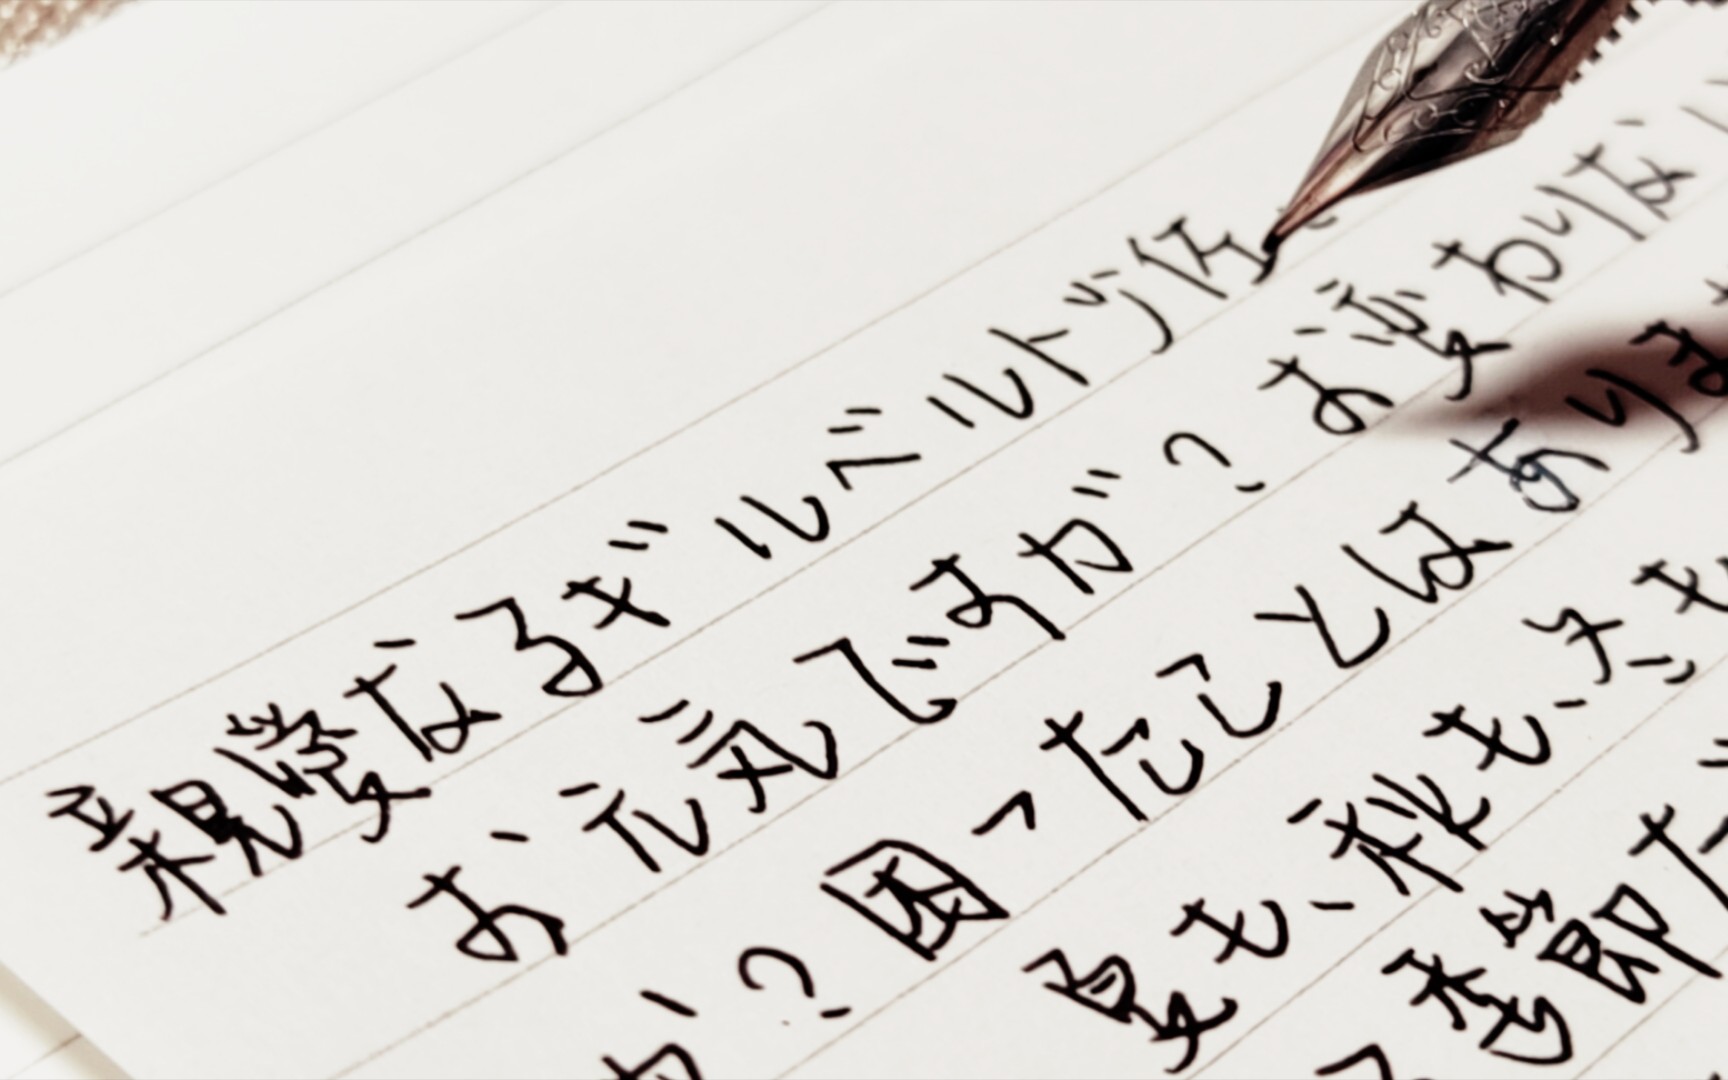 親愛なるギルベルト少佐
お元気ですか？お変わりない
か？困ったことはありま
夏も、秋も、冬も
季節